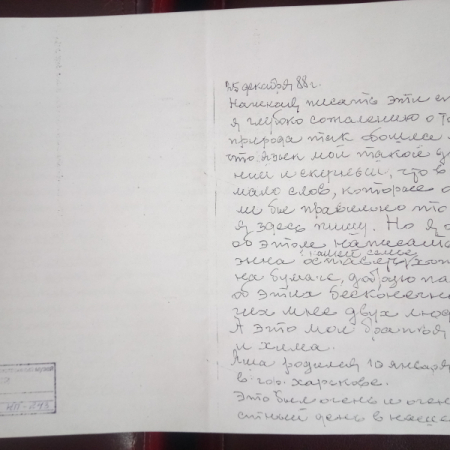 25 декабря 88 г.
Начиная писать эти ст
я глубоко сожалею о то
природа так обошле
что язык мой такой
ний и скупый, что в
мало слов, которые о
ли бы правильно то
я здесь пишу. Но я
об этом написать
жна оставить хот
нашей семье
на бумаге, добрую па
об этих бесконечн
гих мне двух люд
А это мои братья
и хима.
родился 10 января
в гор. Харькове.
Это был очень и очен
стный день в наше